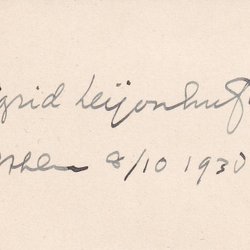 grid Leijonhuf
8/10 1930